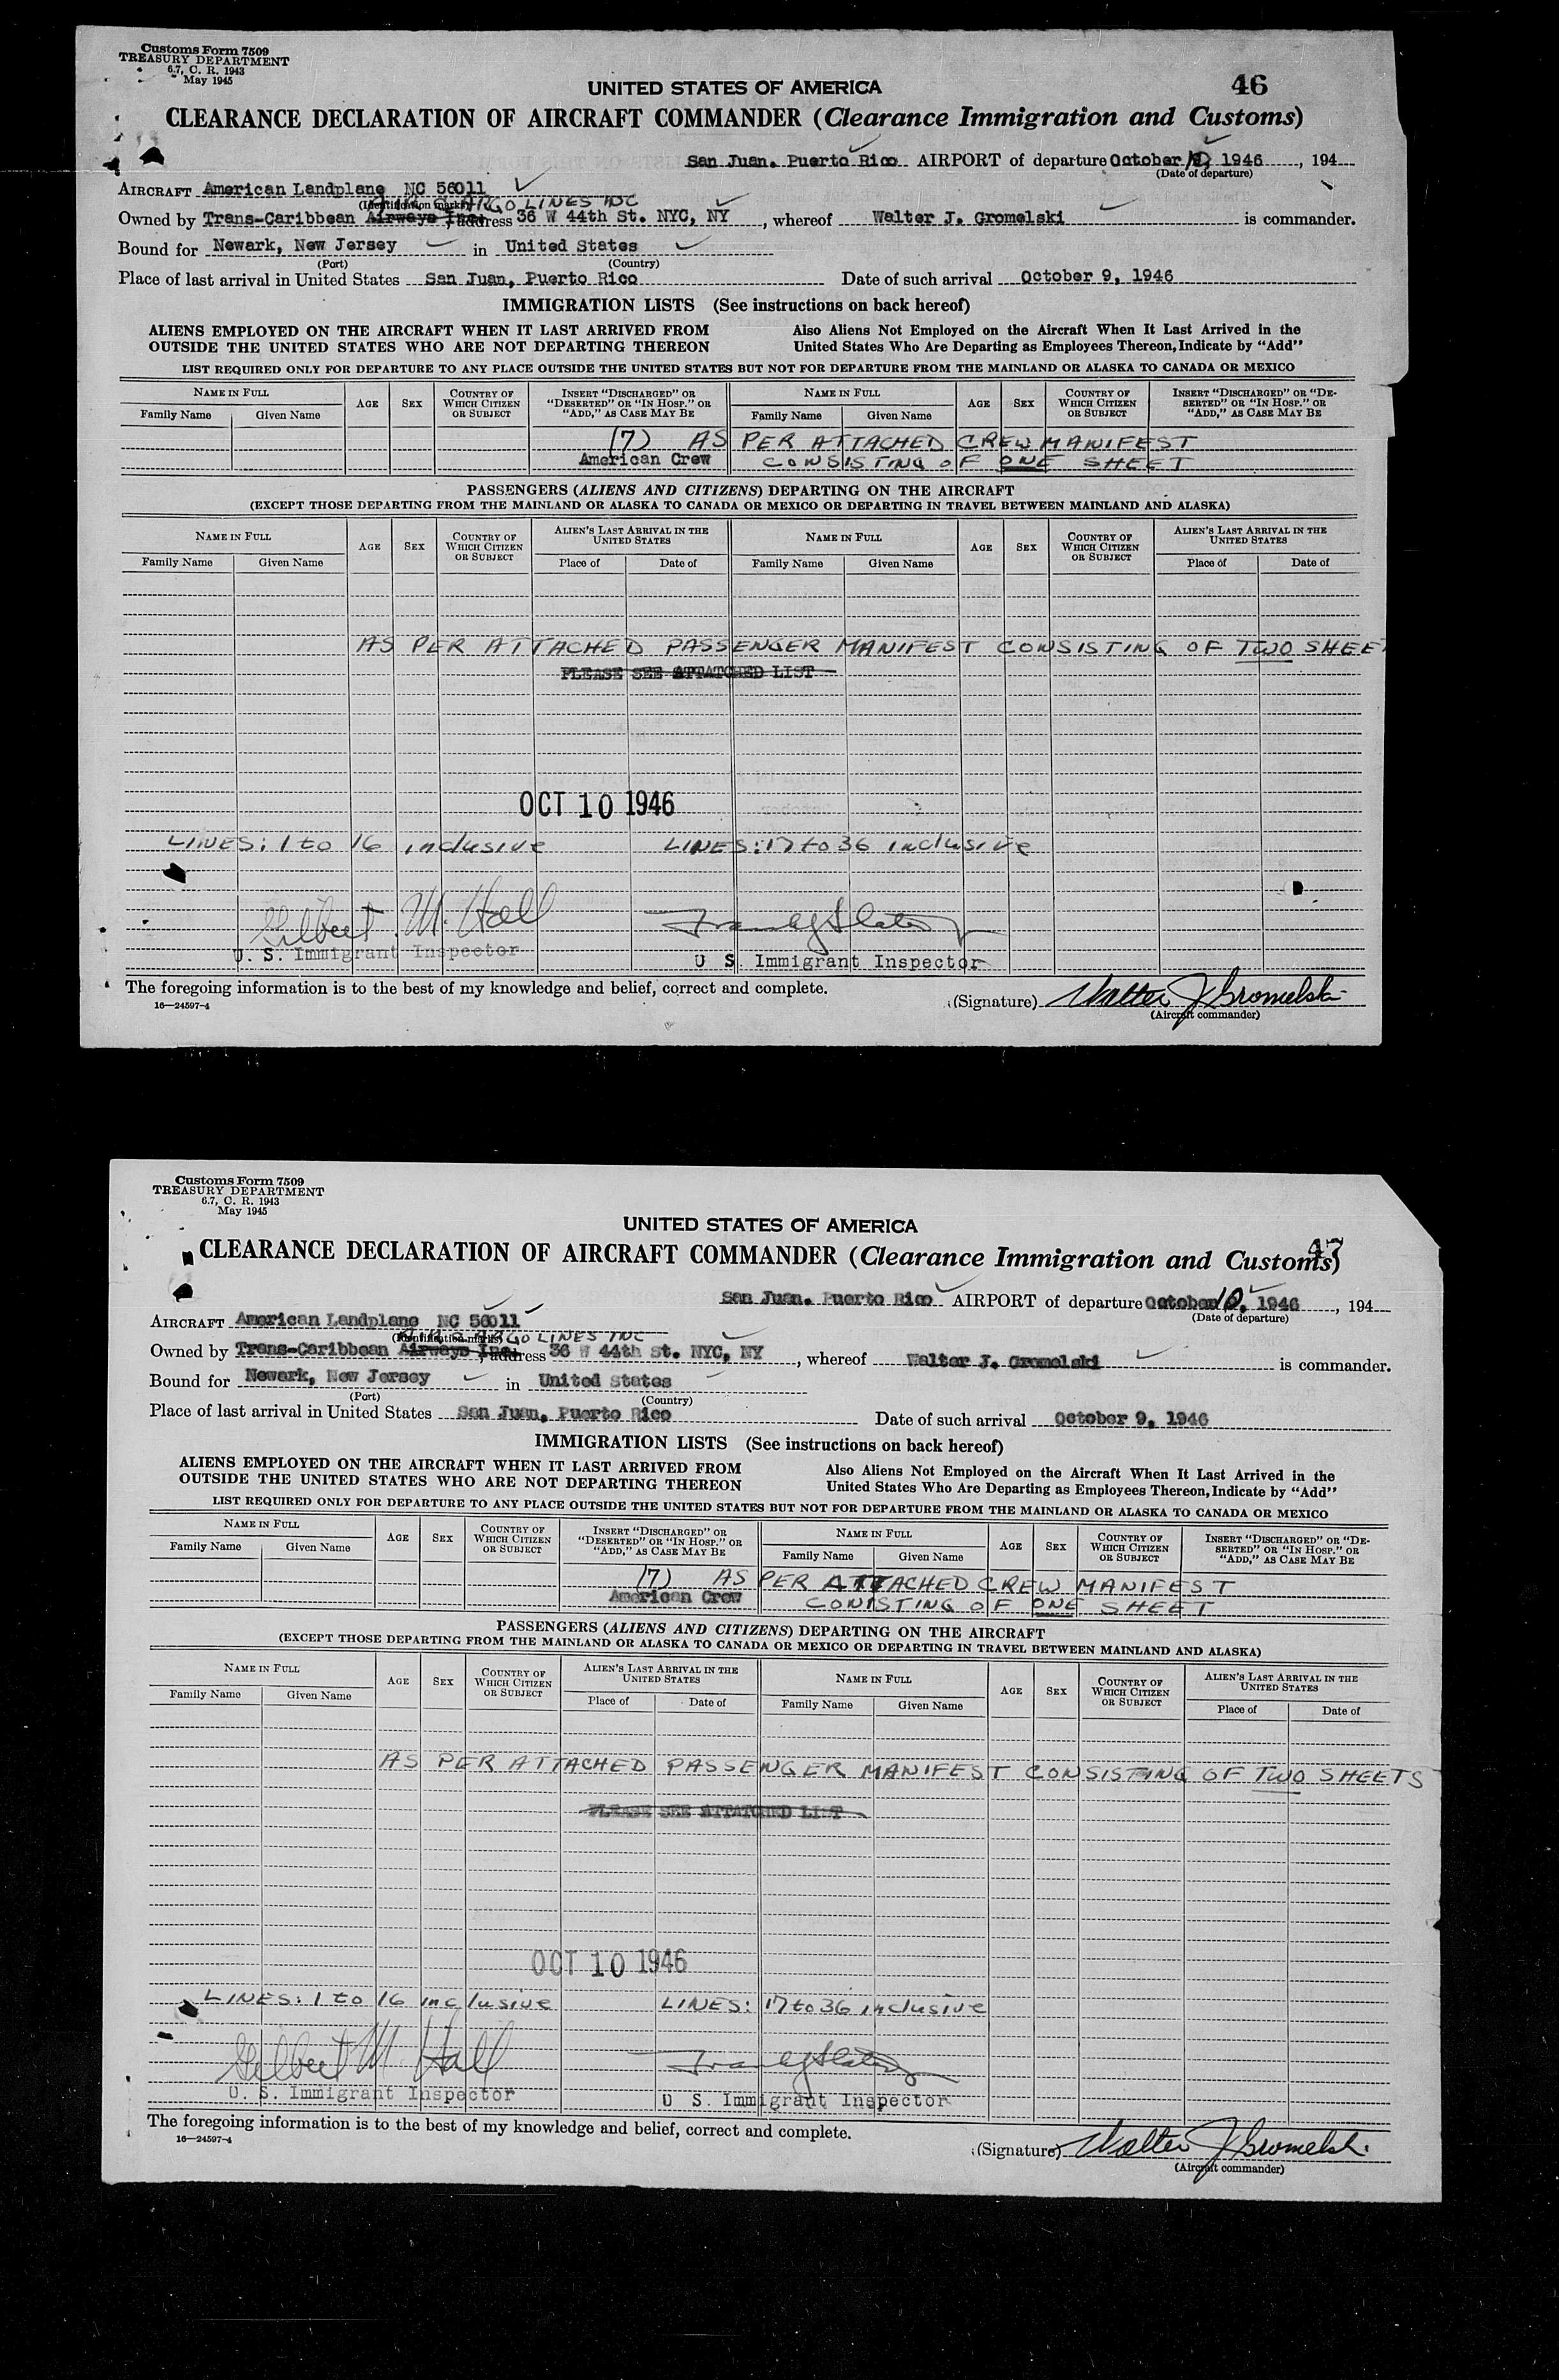 Customs Form 7509
TREASURY DEPARTMENT
6.7, C. R. 1943
May 1945
46
UNITED STATES OF AMERICA
CLEARANCE DECLARATION OF AIRCRAFT COMMANDER (Clearance Immigration and Customs)
San Juan, Puerto Rico AIRPORT of departure October 10, 1946, 194
(Date of departure)
AIRCRAFT American Landplane NC 56011
(Identification marks) AIR CARGO LINES INC
Owned by Trans-Caribbean Airways Inc., address 36 W 44th St. NYC, NY, whereof Walter J. Gromelski is commander.
Bound for Newark, New Jersey in United States
(Port) (Country)
Place of last arrival in United States San Juan, Puerto Rico Date of such arrival October 9, 1946
IMMIGRATION LISTS (See instructions on back hereof)
ALIENS EMPLOYED ON THE AIRCRAFT WHEN IT LAST ARRIVED FROM Also Aliens Not Employed on the Aircraft When It Last Arrived in the
OUTSIDE THE UNITED STATES WHO ARE NOT DEPARTING THEREON United States Who Are Departing as Employees Thereon, Indicate by "Add"
LIST REQUIRED ONLY FOR DEPARTURE TO ANY PLACE OUTSIDE THE UNITED STATES BUT NOT FOR DEPARTURE FROM THE MAINLAND OR ALASKA TO CANADA OR MEXICO
NAME IN FULL AGE SEX COUNTRY OF WHICH CITIZEN OR SUBJECT INSERT "DISCHARGED" OR "DESERTED" OR "IN HOSP." OR "ADD," AS CASE MAY BE NAME IN FULL AGE SEX COUNTRY OF WHICH CITIZEN OR SUBJECT INSERT "DISCHARGED" OR "DE-SERTED" OR "IN HOSP." OR "ADD," AS CASE MAY BE
Family Name Given Name Family Name Given Name
(7) AS PER ATTACHED CREW MANIFEST
American Crew CONSISTING OF ONE SHEET
PASSENGERS (ALIENS AND CITIZENS) DEPARTING ON THE AIRCRAFT
(EXCEPT THOSE DEPARTING FROM THE MAINLAND OR ALASKA TO CANADA OR MEXICO OR DEPARTING IN TRAVEL BETWEEN MAINLAND AND ALASKA)
NAME IN FULL AGE SEX COUNTRY OF WHICH CITIZEN OR SUBJECT ALIEN'S LAST ARRIVAL IN THE UNITED STATES NAME IN FULL AGE SEX COUNTRY OF WHICH CITIZEN OR SUBJECT ALIEN'S LAST ARRIVAL IN THE UNITED STATES
Family Name Given Name Place of Date of Family Name Given Name Place of Date of
AS PER ATTACHED PASSENGER MANIFEST CONSISTING OF TWO SHEET
PLEASE SEE ATTATCHED LIST
OCT 10 1946
LINES: 1 to 16 inclusive LINES: 17 to 36 inclusive
Gilbert M. Hall
U. S. Immigrant Inspector U S. Immigrant Inspector
The foregoing information is to the best of my knowledge and belief, correct and complete.
16—24597-4
(Signature) Walter J Gromelski
(Aircraft commander)
Customs Form 7509
TREASURY DEPARTMENT
6.7, C. R. 1943
May 1945
UNITED STATES OF AMERICA
47
CLEARANCE DECLARATION OF AIRCRAFT COMMANDER (Clearance Immigration and Customs)
San Juan, Puerto Rico AIRPORT of departure October 10, 1946, 194
(Date of departure)
AIRCRAFT American Landplane NC 56011
(Identification marks) AIR CARGO LINES INC
Owned by Trans-Caribbean Airways Inc., address 36 W 44th St. NYC, NY, whereof Walter J. Gromelski is commander.
Bound for Newark, New Jersey in United States
(Port) (Country)
Place of last arrival in United States San Juan, Puerto Rico Date of such arrival October 9, 1946
IMMIGRATION LISTS (See instructions on back hereof)
ALIENS EMPLOYED ON THE AIRCRAFT WHEN IT LAST ARRIVED FROM Also Aliens Not Employed on the Aircraft When It Last Arrived in the
OUTSIDE THE UNITED STATES WHO ARE NOT DEPARTING THEREON United States Who Are Departing as Employees Thereon, Indicate by "Add"
LIST REQUIRED ONLY FOR DEPARTURE TO ANY PLACE OUTSIDE THE UNITED STATES BUT NOT FOR DEPARTURE FROM THE MAINLAND OR ALASKA TO CANADA OR MEXICO
NAME IN FULL AGE SEX COUNTRY OF WHICH CITIZEN OR SUBJECT INSERT "DISCHARGED" OR "DESERTED" OR "IN HOSP." OR "ADD," AS CASE MAY BE NAME IN FULL AGE SEX COUNTRY OF WHICH CITIZEN OR SUBJECT INSERT "DISCHARGED" OR "DE-SERTED" OR "IN HOSP." OR "ADD," AS CASE MAY BE
Family Name Given Name Family Name Given Name
(7) AS PER ATTACHED CREW MANIFEST
American Crew CONISTING OF ONE SHEET
PASSENGERS (ALIENS AND CITIZENS) DEPARTING ON THE AIRCRAFT
(EXCEPT THOSE DEPARTING FROM THE MAINLAND OR ALASKA TO CANADA OR MEXICO OR DEPARTING IN TRAVEL BETWEEN MAINLAND AND ALASKA)
NAME IN FULL AGE SEX COUNTRY OF WHICH CITIZEN OR SUBJECT ALIEN'S LAST ARRIVAL IN THE UNITED STATES NAME IN FULL AGE SEX COUNTRY OF WHICH CITIZEN OR SUBJECT ALIEN'S LAST ARRIVAL IN THE UNITED STATES
Family Name Given Name Place of Date of Family Name Given Name Place of Date of
AS PER ATTACHED PASSENGER MANIFEST CONSISTING OF TWO SHEETS
PLEASE SEE ATTATCHED LIST
OCT 10 1946
LINES: 1 to 16 inclusive LINES: 17 to 36 inclusive
Gilbert M. Hall
U. S. Immigrant Inspector U S. Immigrant Inspector
The foregoing information is to the best of my knowledge and belief, correct and complete.
16—24597-4
(Signature) Walter J Gromelski
(Aircraft commander)